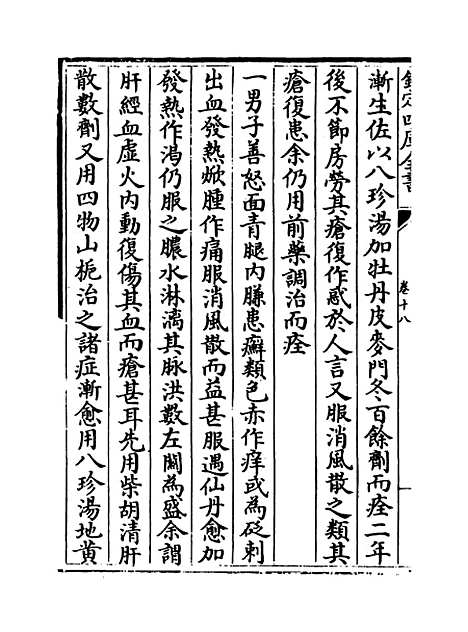 欽定四庫全書
卷十八
漸生佐以八珍湯加牡丹皮麥門冬百餘劑而痊二年
後不節房勞其瘡復作惑於人言又服消風散之類其
瘡復患余仍用前藥調治而痊
一男子善怒面青腿内臁患癬類色赤作痒或為砭刺
出血發熱焮腫作痛服消風散而益甚服遇仙丹愈加
發熱作渴仍服之膿水淋漓其脉洪數左關為盛余謂
肝經血虚火内動復傷其血而瘡甚耳先用柴胡清肝
散數劑又用四物山梔治之諸症漸愈用八珍湯地黄